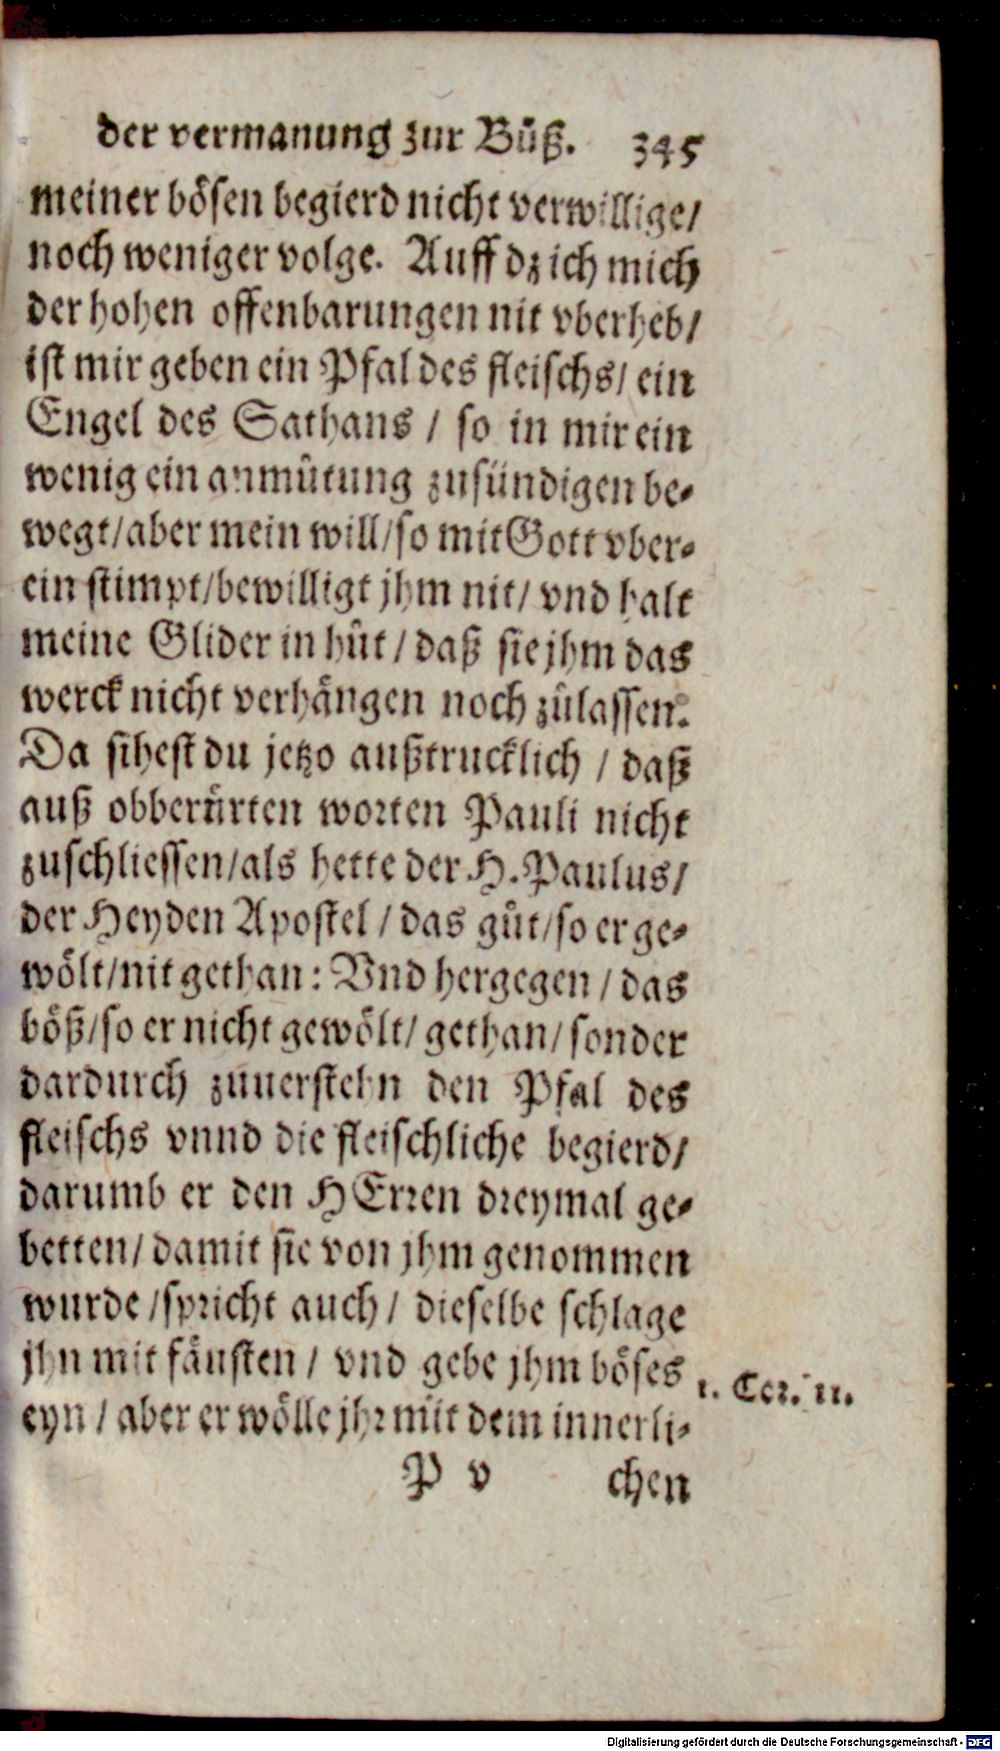 der vermanung zur Bůß. 345
meiner bösen begierd nicht verwillige/
noch weniger volge. Auff dz ich mich
der hohen offenbarungen nit vberheb/
ist mir geben ein Pfal des fleischs/ ein
Engel des Sathans / so in mir ein
wenig ein anmůtung zusündigen be⸗
wegt/aber mein will/so mit Gott vber⸗
ein stimpt/bewilligt jhm nit/ vnd halt
meine Glider in hůt / daß sie jhm das
werck nicht verhängen noch zůlassen.
Da sihest du jetzo außtrucklich / daß
auß obberůrten worten Pauli nicht
zuschliessen/als hette der H. Paulus/
der Heyden Apostel / das gůt/so er ge⸗
wölt/nit gethan: Vnd hergegen / das
böß/so er nicht gewölt/ gethan/ sonder
dardurch zuuerstehn den Pfal des
fleischs vnnd die fleischliche begierd/
darumb er den HErren dreymal ge⸗
betten/ damit sie von jhm genommen
wurde /spricht auch / dieselbe schlage
jhn mit fäusten / vnd gebe jhm böses
1. Cor. 11.
eyn / aber er wölle jhr mit dem innerli⸗
P v chen
Digitalisierung gefördert durch die Deutsche Forschungsgemeinschaft - DFG